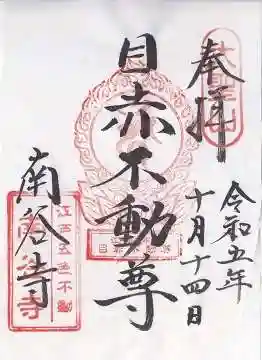 奉拝
令和五年
十月十四日
目赤不動尊
南谷寺
江戸五色不動